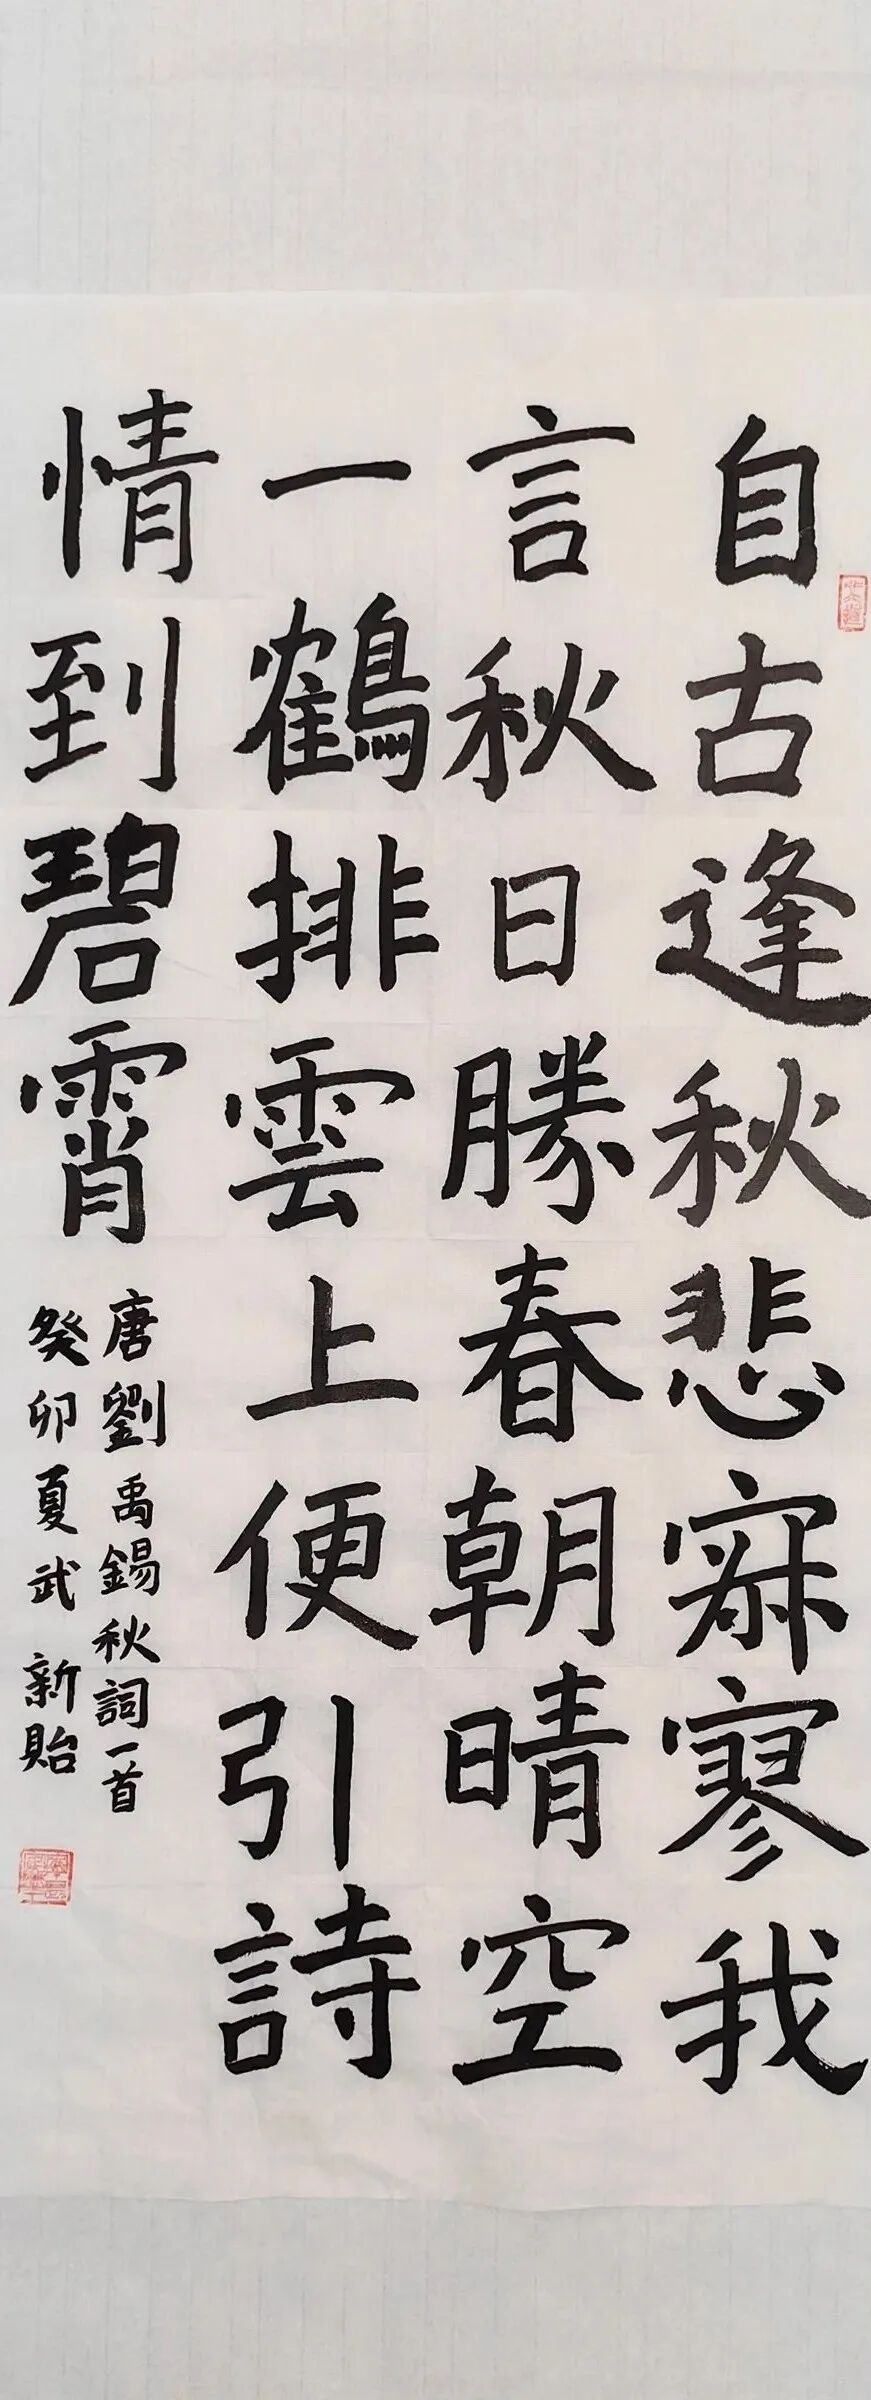 自古逢秋悲寂寥我
言秋日勝春朝晴空
一鶴排雲上便引詩
情到碧霄
唐劉禹錫秋詞一首
癸卯夏武新貽